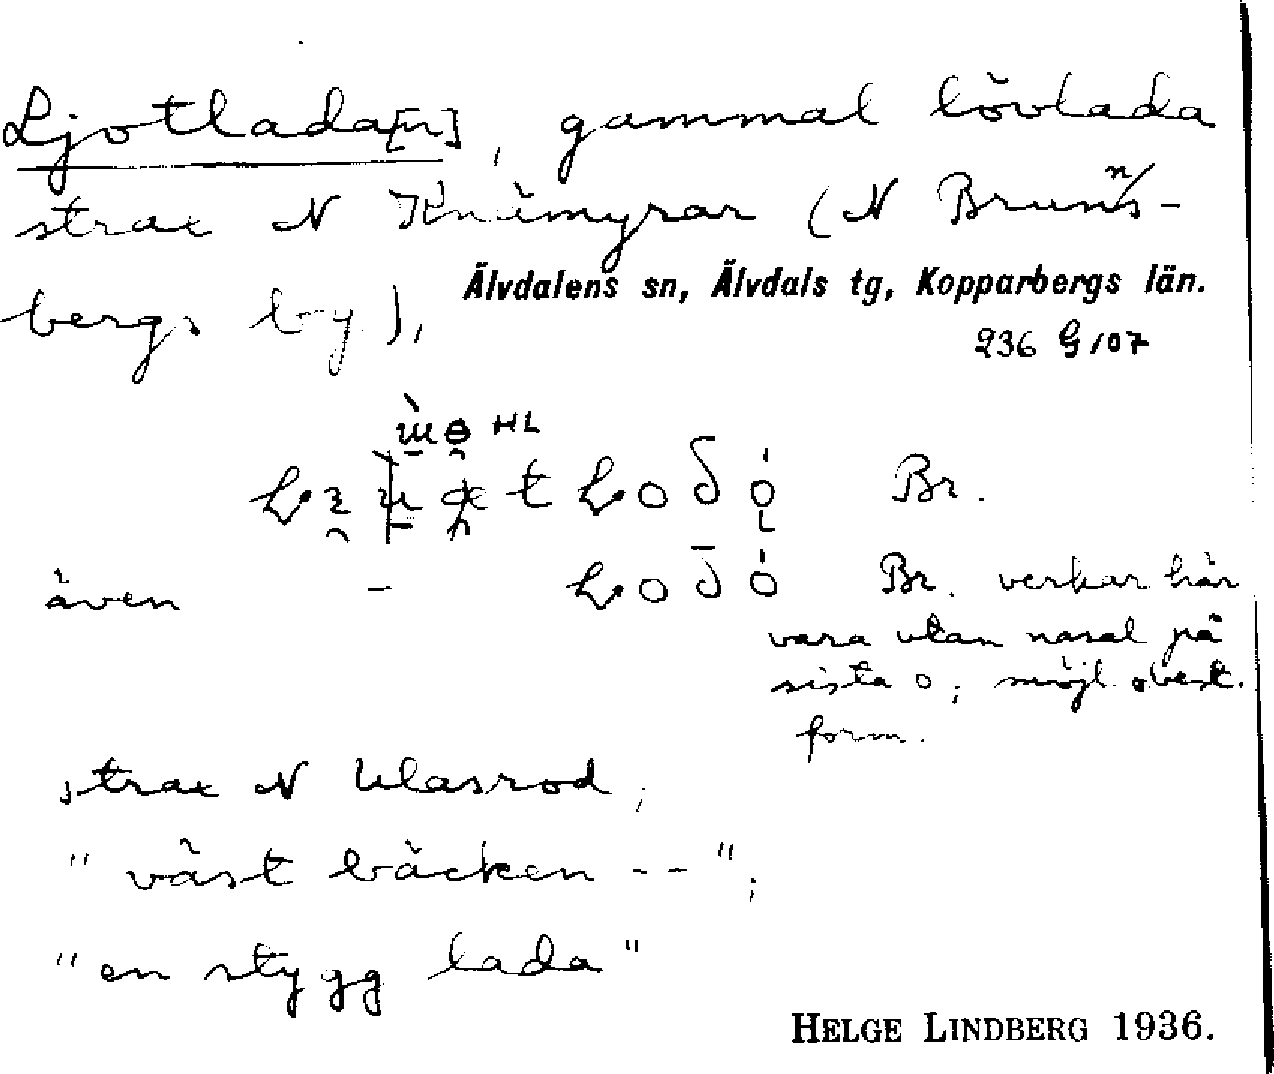 Ljotlada[n], gammal lövlada
strax N Knämyrar (N Brunns-
bergs by),
Älvdalens sn, Älvdals tg, Kopparbergs län.
236 G 107
HL
Br.
även - Br. verkar här
vara utan nasal på
sista o; möjl. obest.
form.
strax N Klasrod;
"väst bäcken --";
"en stygg lada"
HELGE LINDBERG 1936.